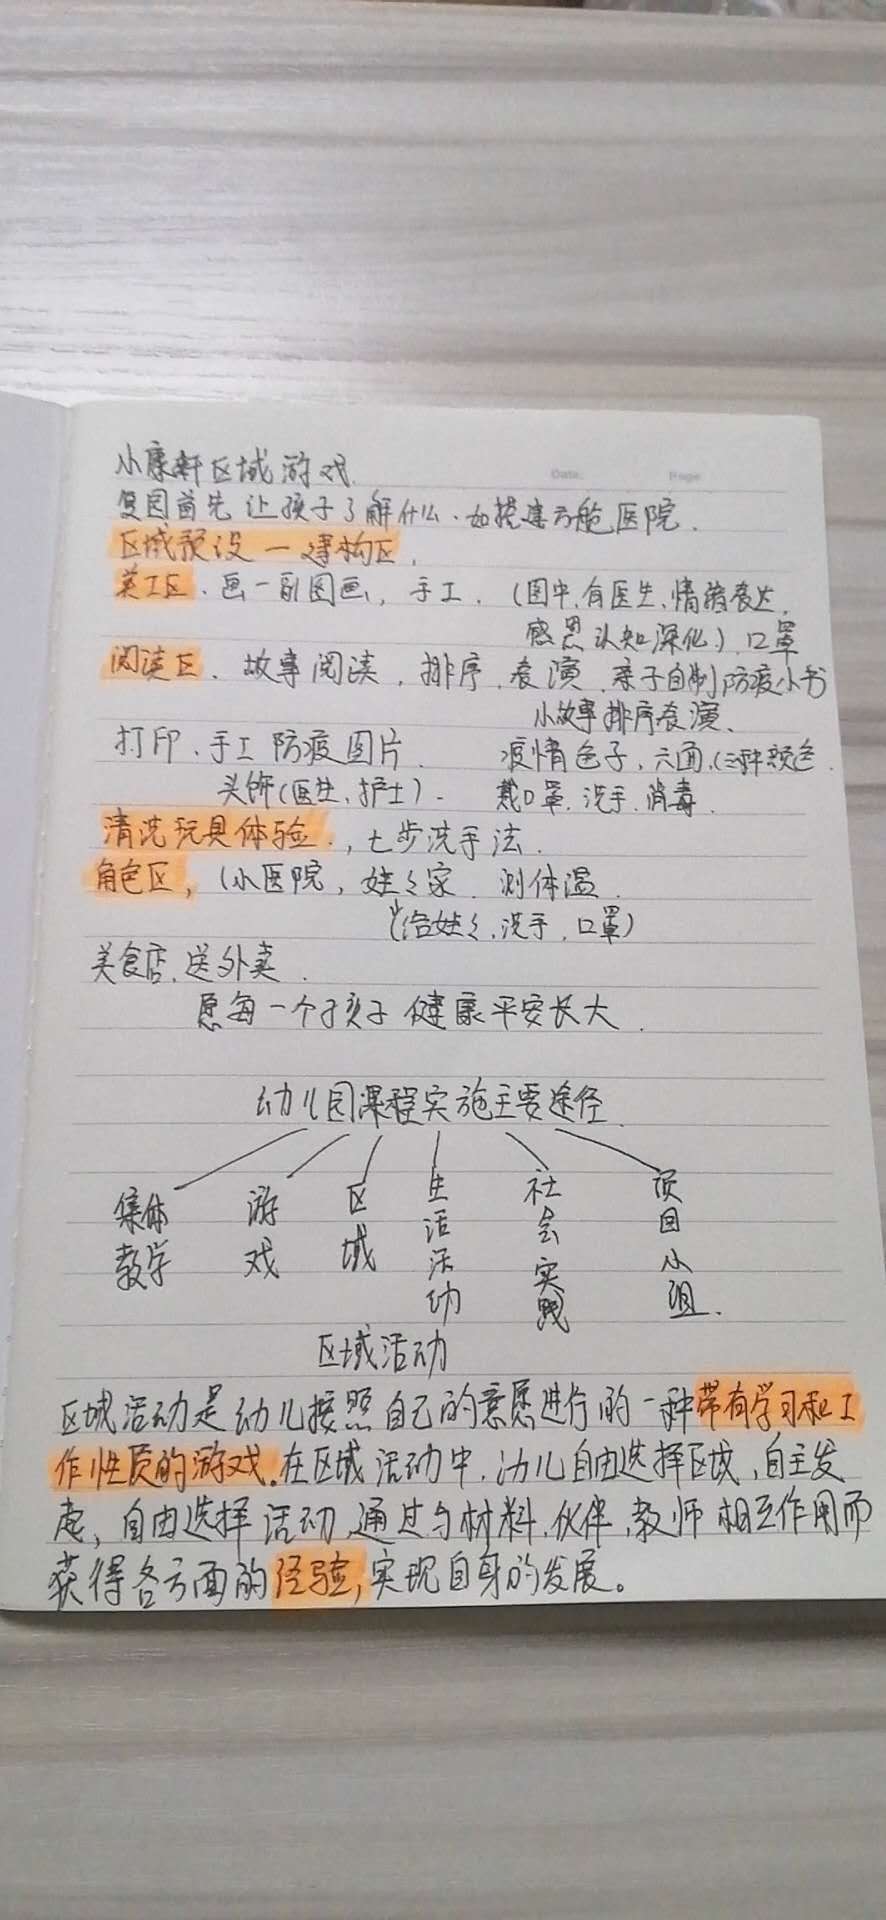 小康轩区域游戏.
Date. Page
复园首先让孩子了解什么.如搭建方舱医院.
区域预设一建构区,
美工区.画一副图画,手工.(图中,有医生,情绪表达,
感恩认知深化)口罩
阅读区.故事阅读,排序,表演.亲子自制防疫小书
小故事排序表演、
打印、手工防疫图片. 疫情色子,六面,(三种颜色.
头饰(医生,护士). 戴口罩.洗手.消毒.
清洗玩具体验.,七步洗手法.
角色区,(小医院,娃々家.测体温.
(给娃々,洗手,口罩)
美食店.送外卖.
愿每一个孩子健康平安长大.
幼儿园课程实施主要途径.
集体教学 游戏 区域 生活活动 社会实践 项目小组.
区域活动
区域活动是幼儿按照自己的意愿进行的一种带有学习和工
作性质的游戏。在区域活动中,幼儿自由选择区域,自主发
起,自由选择活动,通过与材料.伙伴,教师相互作用而
获得各方面的经验,实现自身的发展。